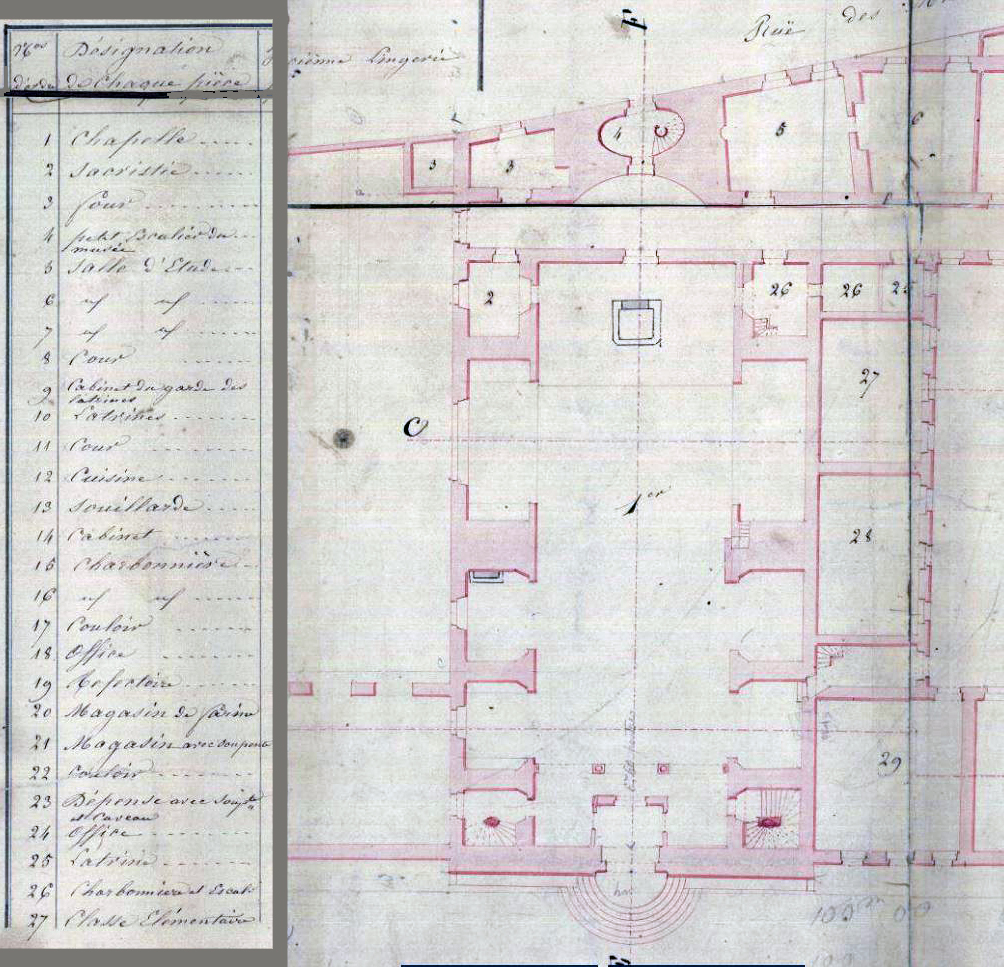 Nos Désignation
d'ordre de Chaque pièce
1 Chapelle
2 Sacristie
3 Cour
4 petit Escalier du
musée
5 Salle d'Etude
6 id id
7 id id
8 Cour
9 Cabinet du garde des
latrines
10 Latrines
11 Cour
12 Cuisine
13 Souillarde
14 Cabinet
15 Charbonnière
16 id id
17 Couloir
18 Office
19 Refectoire
20 Magasin de farine
21 Magasin avec soupente
22 Couloir
23 Dépense avec soupte
et Caveau
24 Office
25 Latrine
26 Charbonniere et Escalr
27 Classe Elémentaire
Lingerie
F
Rüe des
3
3
4
5
6
2
26
26
25
27
C
1er
28
29
E